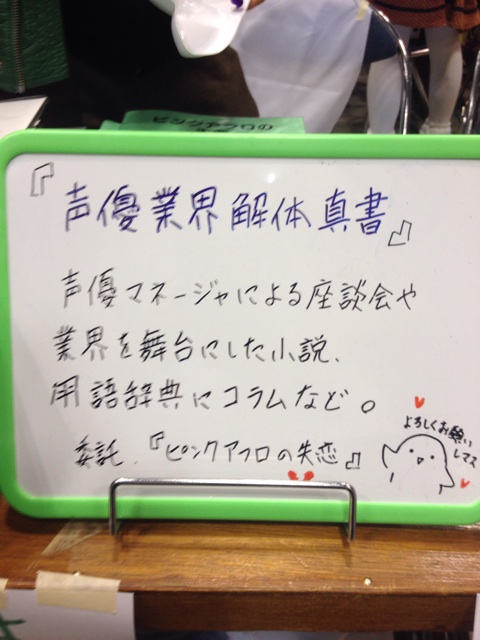 ピンクアフロの
『声優業界解体真書』
声優マネージャによる座談会や
業界を舞台にした小説、
用語辞典にコラムなど。
委託、『ピンクアフロの失恋』
よろしくお願い
しマス